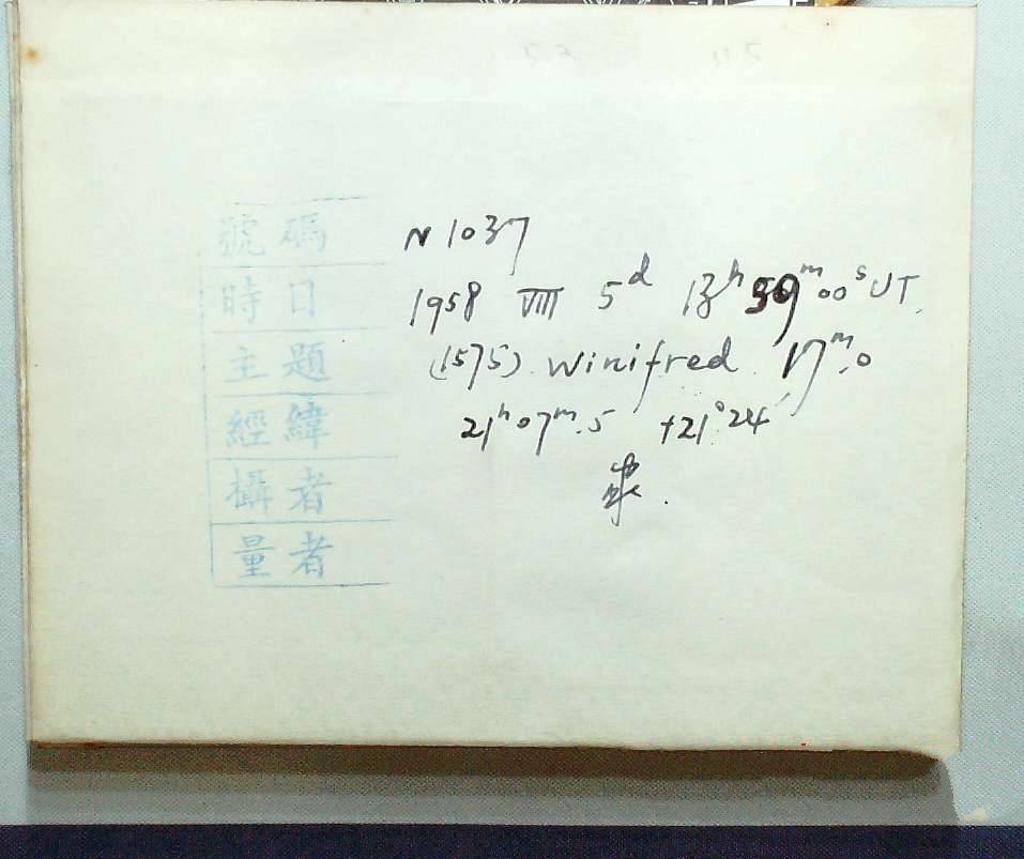 號碼 N 1037
時日 1958 VIII 5ᵈ 13ʰ 59ᵐ 00ˢ UT.
主題 (1575) Winifred 17ᵐ.0
經緯 21ʰ 07ᵐ.5 +21° 24′
攝者
量者